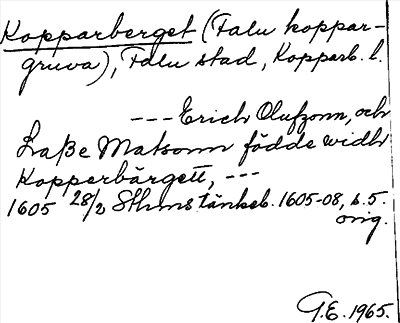 Kopparberget (Falu koppar-
gruva), Falu stad, Kopparb. l.
--- Erich Olufzonn, och
Laße Matsonn födde widh
Kopperbärgett, ---
1605 28/2 Sthms tänkeb. 1605-08, s. 5.
orig.
G.E. 1965.